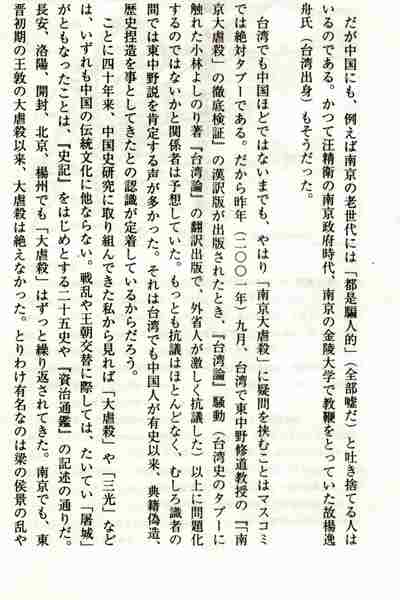 だが中国にも、例えば南京の老世代には「都是騙人的」（全部嘘だ）と吐き捨てる人は
いるのである。かつて汪精衛の南京政府時代、南京の金陵大学で教鞭をとっていた故楊逸
舟氏（台湾出身）もそうだった。
台湾でも中国ほどではないまでも、やはり「南京大虐殺」に疑問を挟むことはマスコミ
では絶対タブーである。だから昨年（二〇〇一年）九月、台湾で東中野修道教授の『「南
京大虐殺」の徹底検証』の漢訳版が出版されたとき、『台湾論』騒動（台湾史のタブーに
触れた小林よしのり著『台湾論』の翻訳出版で、外省人が激しく抗議した）以上に問題化
するのではないかと関係者は予想していた。もっとも抗議はほとんどなく、むしろ識者の
間では東中野説を肯定する声が多かった。それは台湾でも中国人が有史以来、典籍偽造、
歴史捏造を事としてきたとの認識が定着しているからだろう。
ことに四十年来、中国史研究に取り組んできた私から見れば「大虐殺」や「三光」など
は、いずれも中国の伝統文化に他ならない。戦乱や王朝交替に際しては、たいてい「屠城」
がともなったことは、『史記』をはじめとする二十五史や『資治通鑑』の記述の通りだ。
長安、洛陽、開封、北京、楊州でも「大虐殺」はずっと繰り返されてきた。南京でも、東
晋初期の王敦の大虐殺以来、大虐殺は絶えなかった。とりわけ有名なのは梁の侯景の乱や